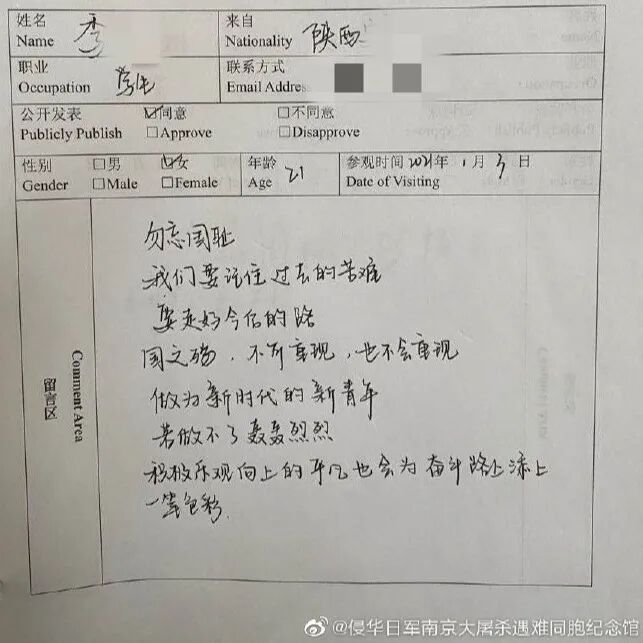 姓名 李 来自 陕西
Name Nationality
职业 学生 联系方式
Occupation Email Address
公开发表 ☑同意 □不同意
Publicly Publish □Approve □Disapprove
性别 □男 ☑女 年龄 21 参观时间 2021年 1 月 3 日
Gender □Male □Female Age Date of Visiting
留言区
Comment Area
勿忘国耻
我们要记住过去的苦难
要走好今后的路
国之殇,不可重现,也不会重现
做为新时代的新青年
若做不了轰轰烈烈
积极乐观向上的平凡也会为奋斗路上添上
一笔色彩.
@侵华日军南京大屠杀遇难同胞纪念馆